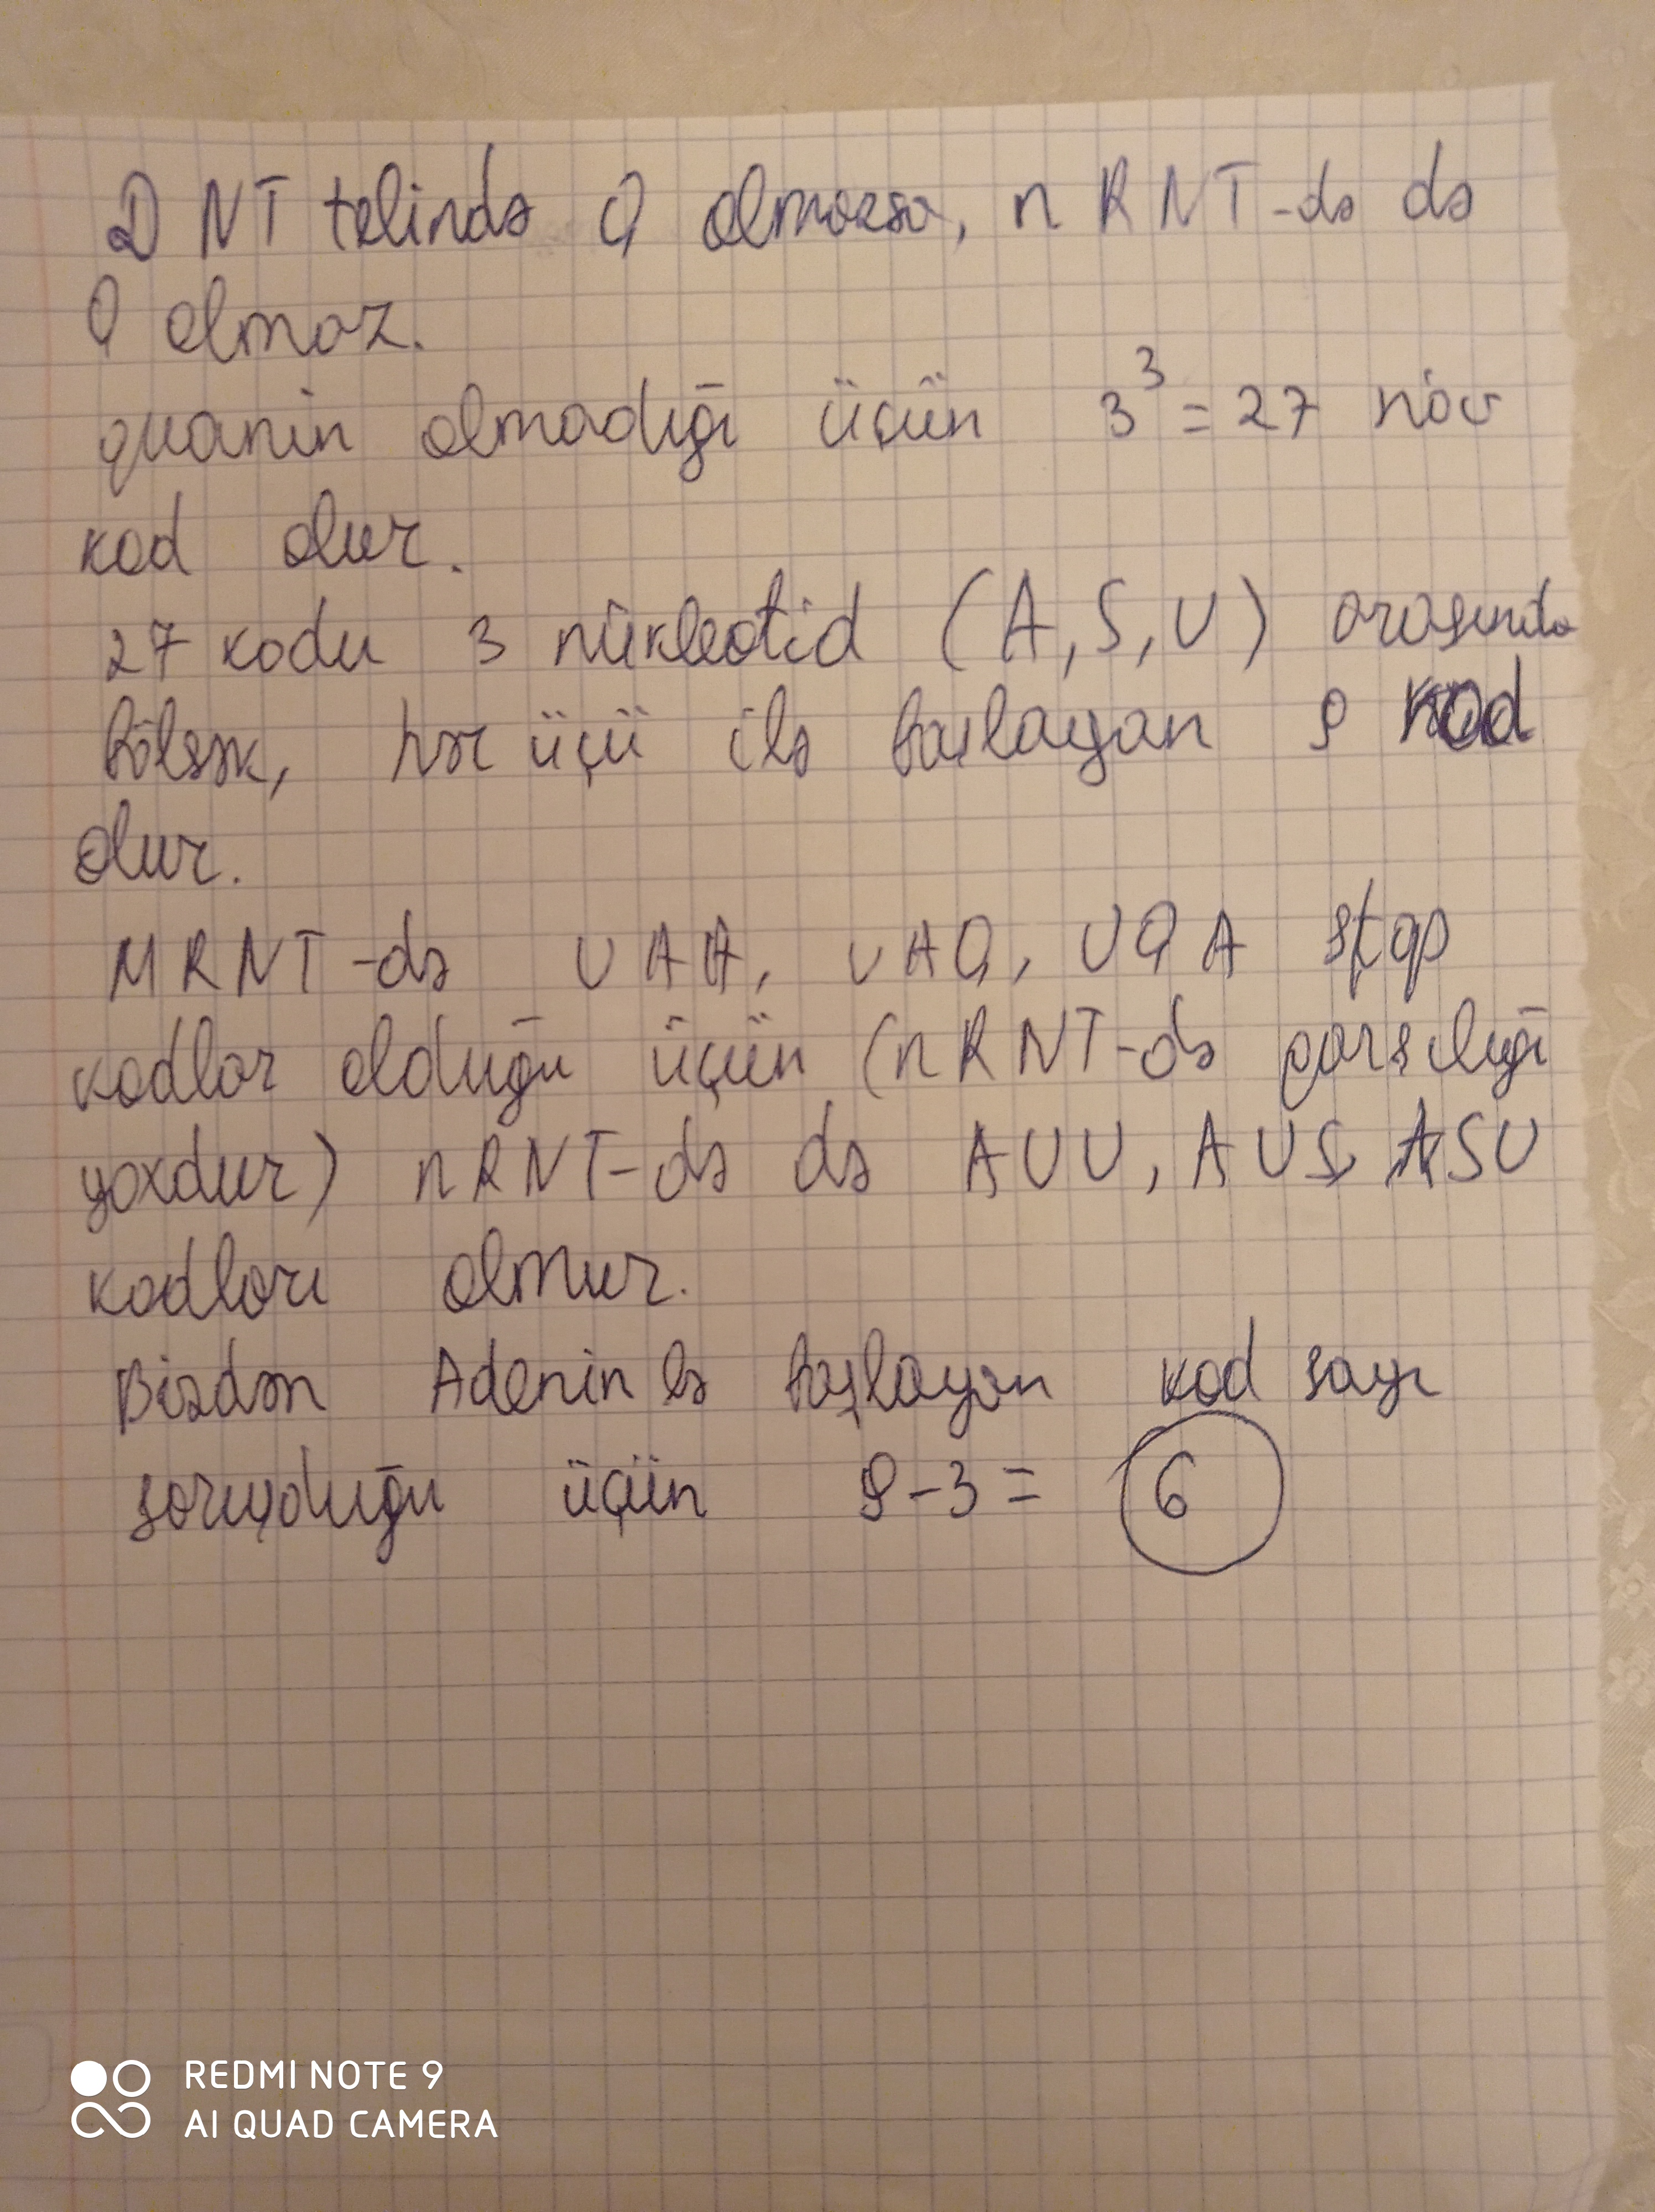 DNT telində Q olmazsa, nRNT-də də
Q olmaz.
quanin olmadığı üçün 3³ = 27 növ
kod olur.
27 kodu 3 nükleotid (A, S, U) arasında
bölsək, hər üçü ilə başlayan 9 kod
olur.
MRNT-də UAA, UAQ, UQA stop
kodlar olduğu üçün (nRNT-də qarşılığı
yoxdur) nRNT-də də AUU, AUS, ASU
kodları olmur.
Bizdən Adeninlə başlayan kod sayı
soruşduğu üçün 9-3= 6
REDMI NOTE 9
AI QUAD CAMERA